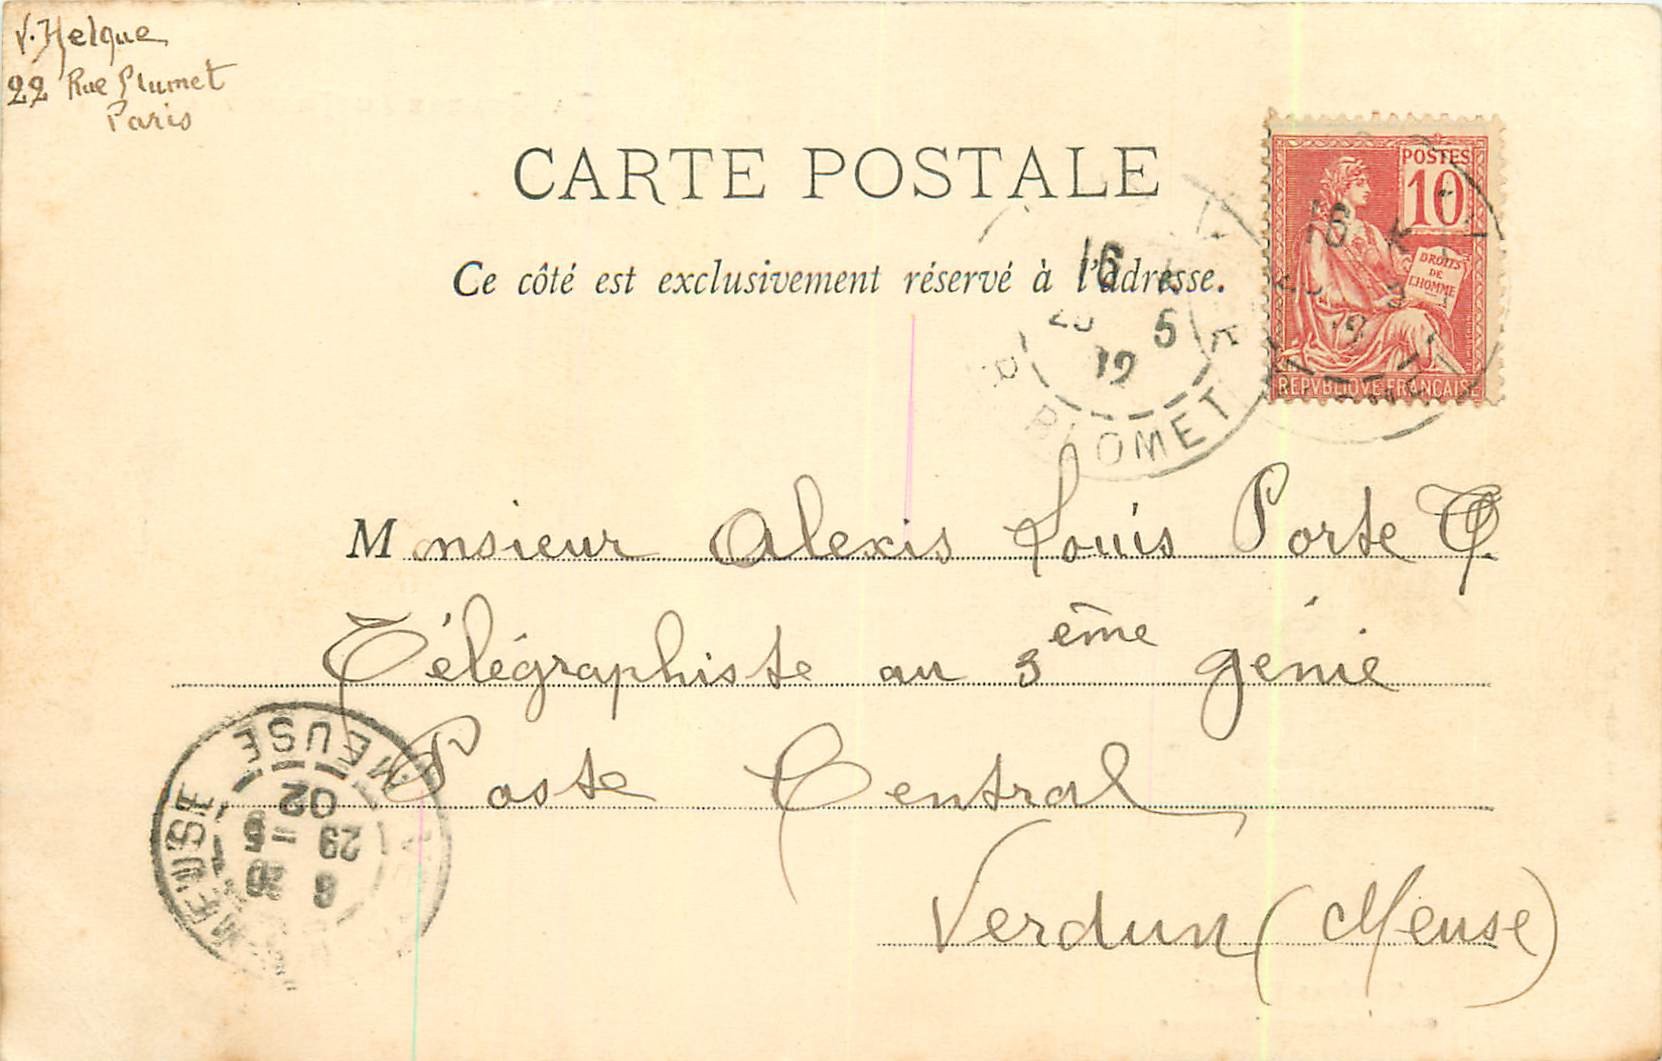 V. Helque
22 Rue Plumet
Paris
CARTE POSTALE
Ce côté est exclusivement réservé à l'adresse.
POSTES
10
DROITS
DE
L'HOMME
REPVBLIQVE FRANÇAISE
16
5
19
R. BLOMET
16
19
Monsieur Alexis Louis Porte
Télégraphiste au 3ème génie
Poste Central
Verdun (Meuse)
MEUSE
MEUSE
6
29 - 5
02